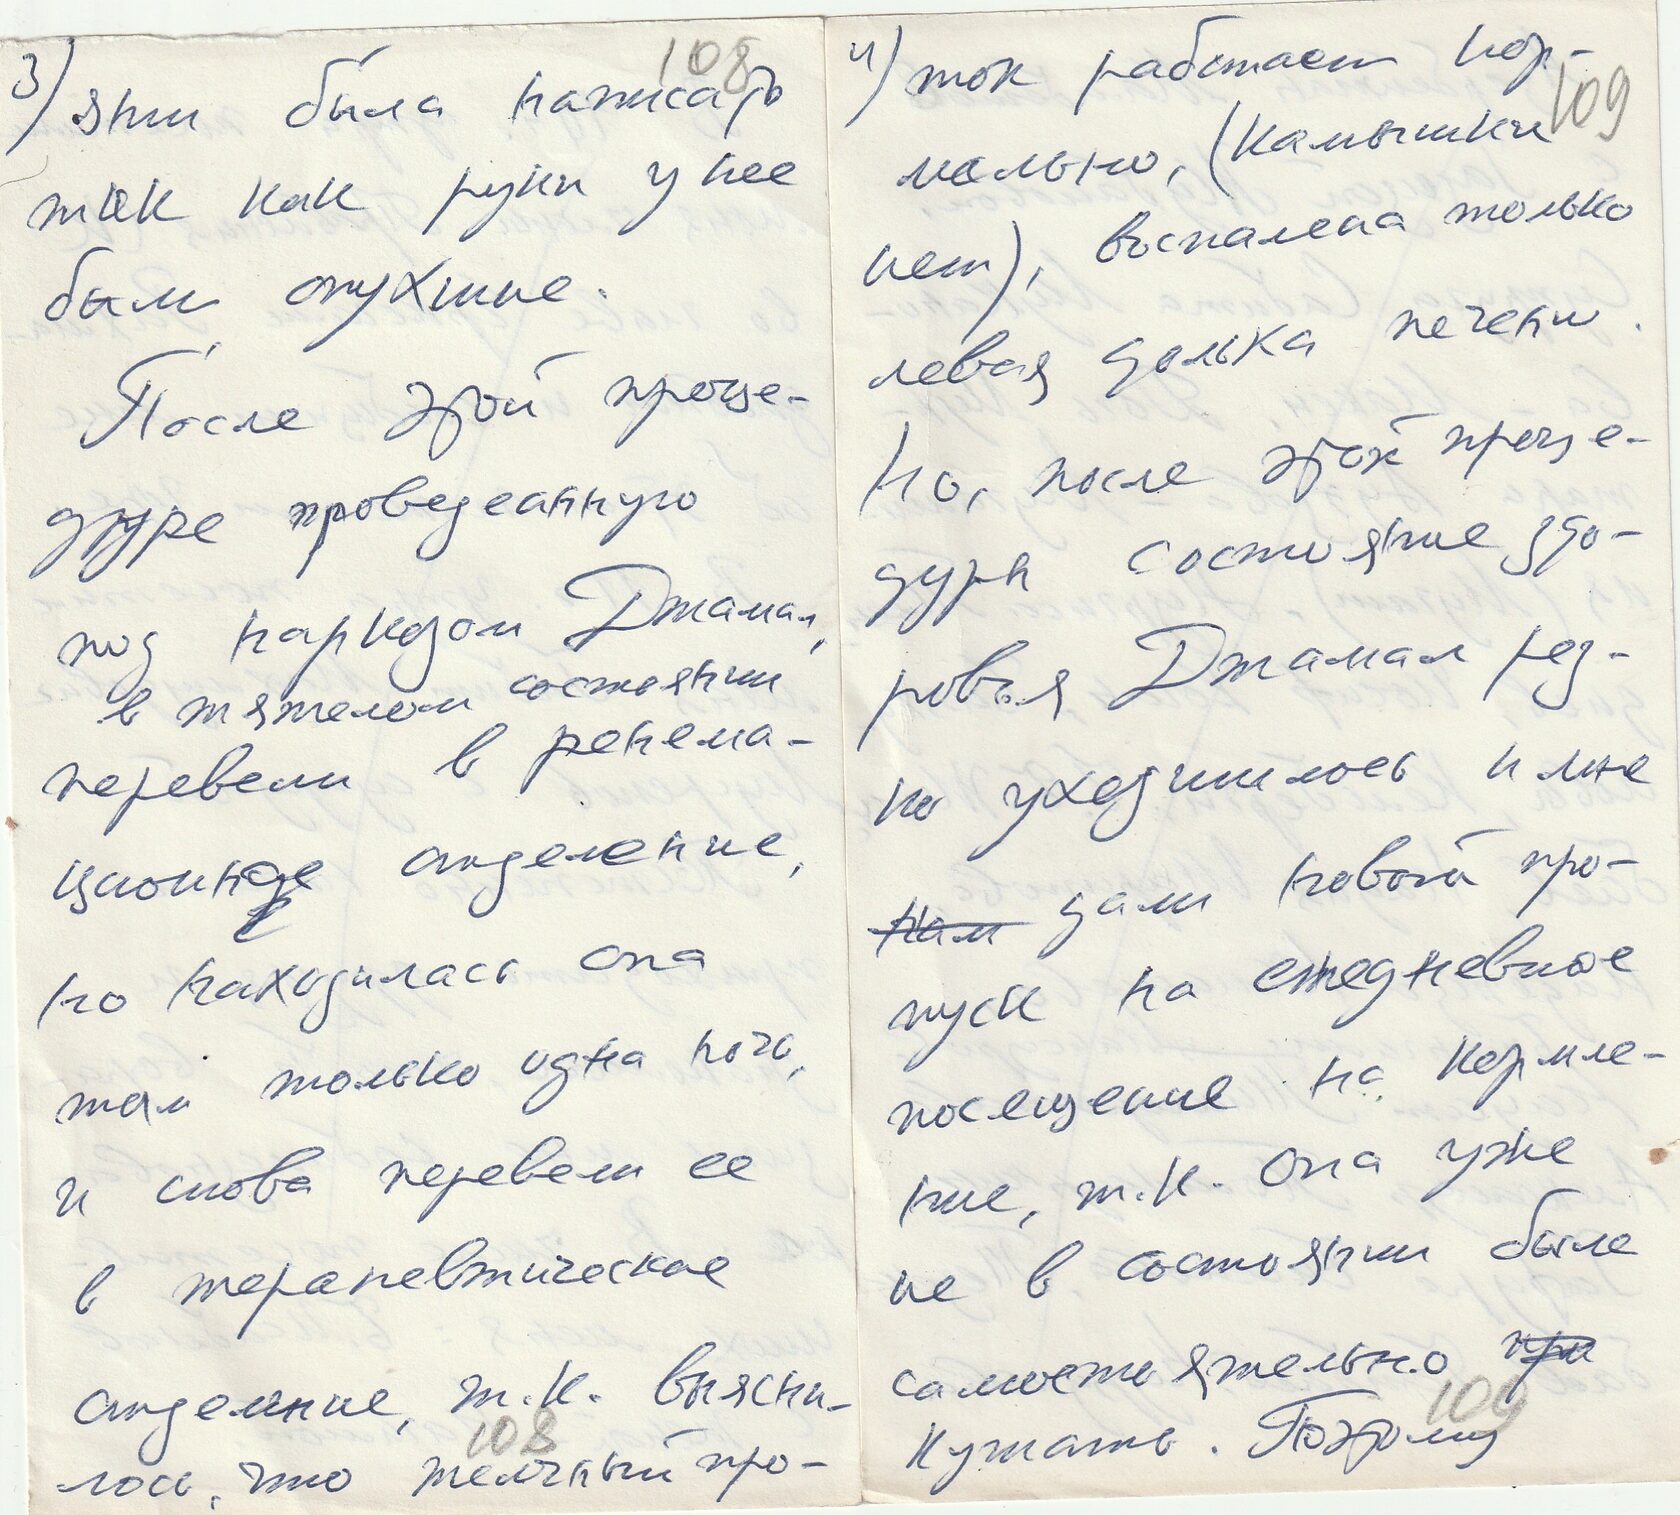 3)
108
янии была написать
так как руки у нее
были опухшие.
После этой проце-
дуре проведенную
под наркозом Джамал,
в тяжелом состоянии
перевели в
отделение,
но находилась она
там только одна ночь,
и снова перевели ее
в терапевтическое
отделение, т.к. выясни-
108
лось, что желчный про-
4)
109
ток работает нор-
мально, (камышки
нет), воспалена только
левая долька печени.
Но, после этой проце-
дуры состояние здо-
ровья Джамал рез-
ко уходшилось и мне
нам дали новый про-
пуск на ежедневное
посещение на кормле-
ние, т.к. она уже
не в состоянии была
самостоятельно
109
кушать. Поэтому